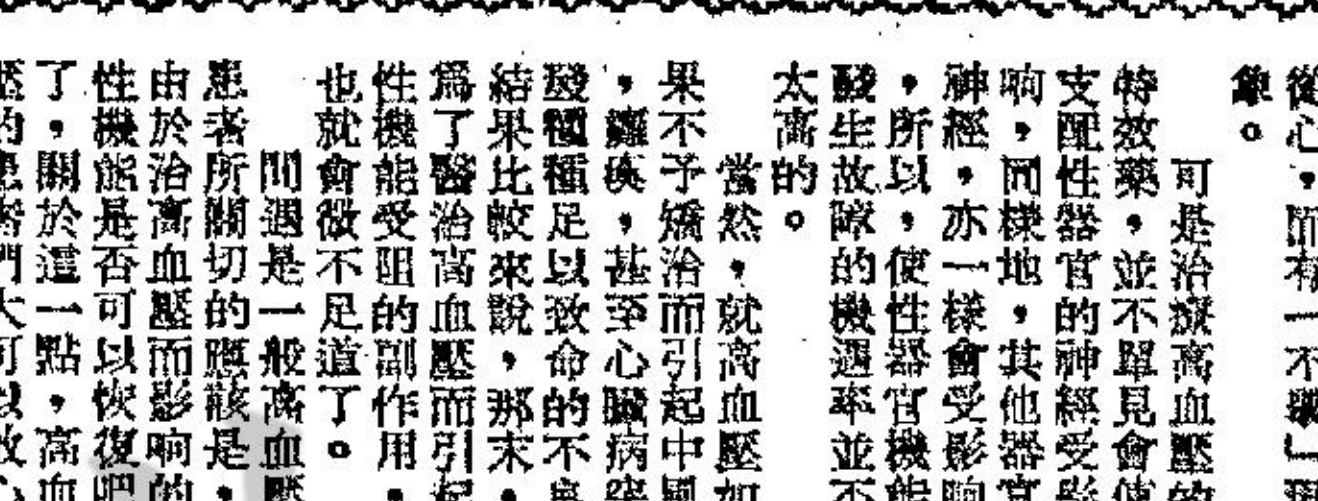 從心，而有一不舉」現
象。
可是治療高血壓的
特效藥，並不單見會使
支配性器官的神經受影
响，同樣地，其他器官
神經，亦一樣會受影响
，所以，使性器官機能
發生故障的機遇率並不
太高的。
當然，就高血壓如
果不予矯治而引起中風
，癱瘓，甚至心臟病等
發種種足以致命的不良
結果比較來說，那末，
爲了醫治高血壓而引起
性機能受阻的副作用，
也就會微不足道了。
問題是一般高血壓
患者所關切的應該是，
由於治高血壓而影响的
性機能是否可以恢復吧
了，關於這一點，高血
壓的患者們大可以放心